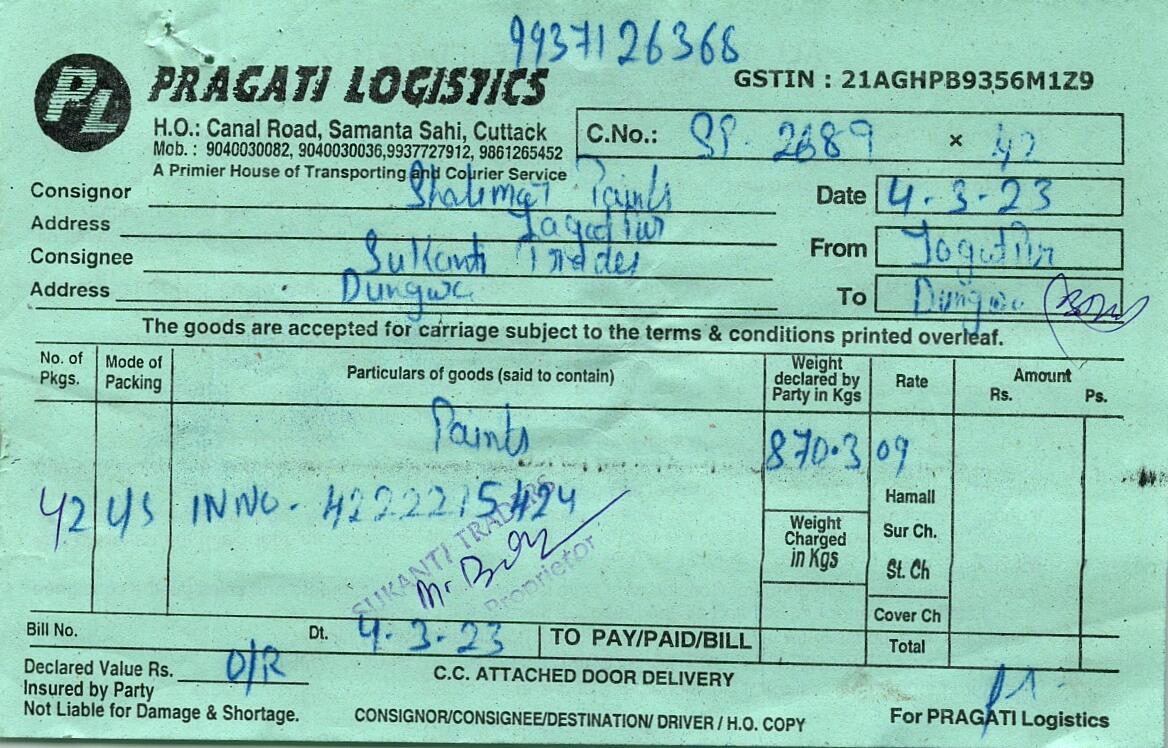 9937126368
PL PRAGATI LOGISTICS
GSTIN : 21AGHPB9356M1Z9
H.O.: Canal Road, Samanta Sahi, Cuttack
Mob. : 9040030082, 9040030036,9937727912, 9861265452
A Primier House of Transporting and Courier Service
C.No.: SP. 2689 × 42
Consignor Shalimar Paints
Date 4-3-23
Address Jagatpur
From Jagatpur
Consignee Sukanti Traders
Address Dungura
To Dungura
The goods are accepted for carriage subject to the terms & conditions printed overleaf.
No. of Pkgs. Mode of Packing Particulars of goods (said to contain) Weight declared by Party in Kgs Rate Amount Rs. Ps.
Paints
870.3 09
42 4/5 INNO - 4222215424
Hamall
Weight Charged in Kgs
Sur Ch.
St. Ch
SUKANTI TRADERS
Proprietor
Cover Ch
Bill No. Dt. 4-3-23 TO PAY/PAID/BILL Total
Declared Value Rs. O/R
C.C. ATTACHED DOOR DELIVERY
Insured by Party
Not Liable for Damage & Shortage.
CONSIGNOR/CONSIGNEE/DESTINATION/ DRIVER / H.O. COPY
For PRAGATI Logistics